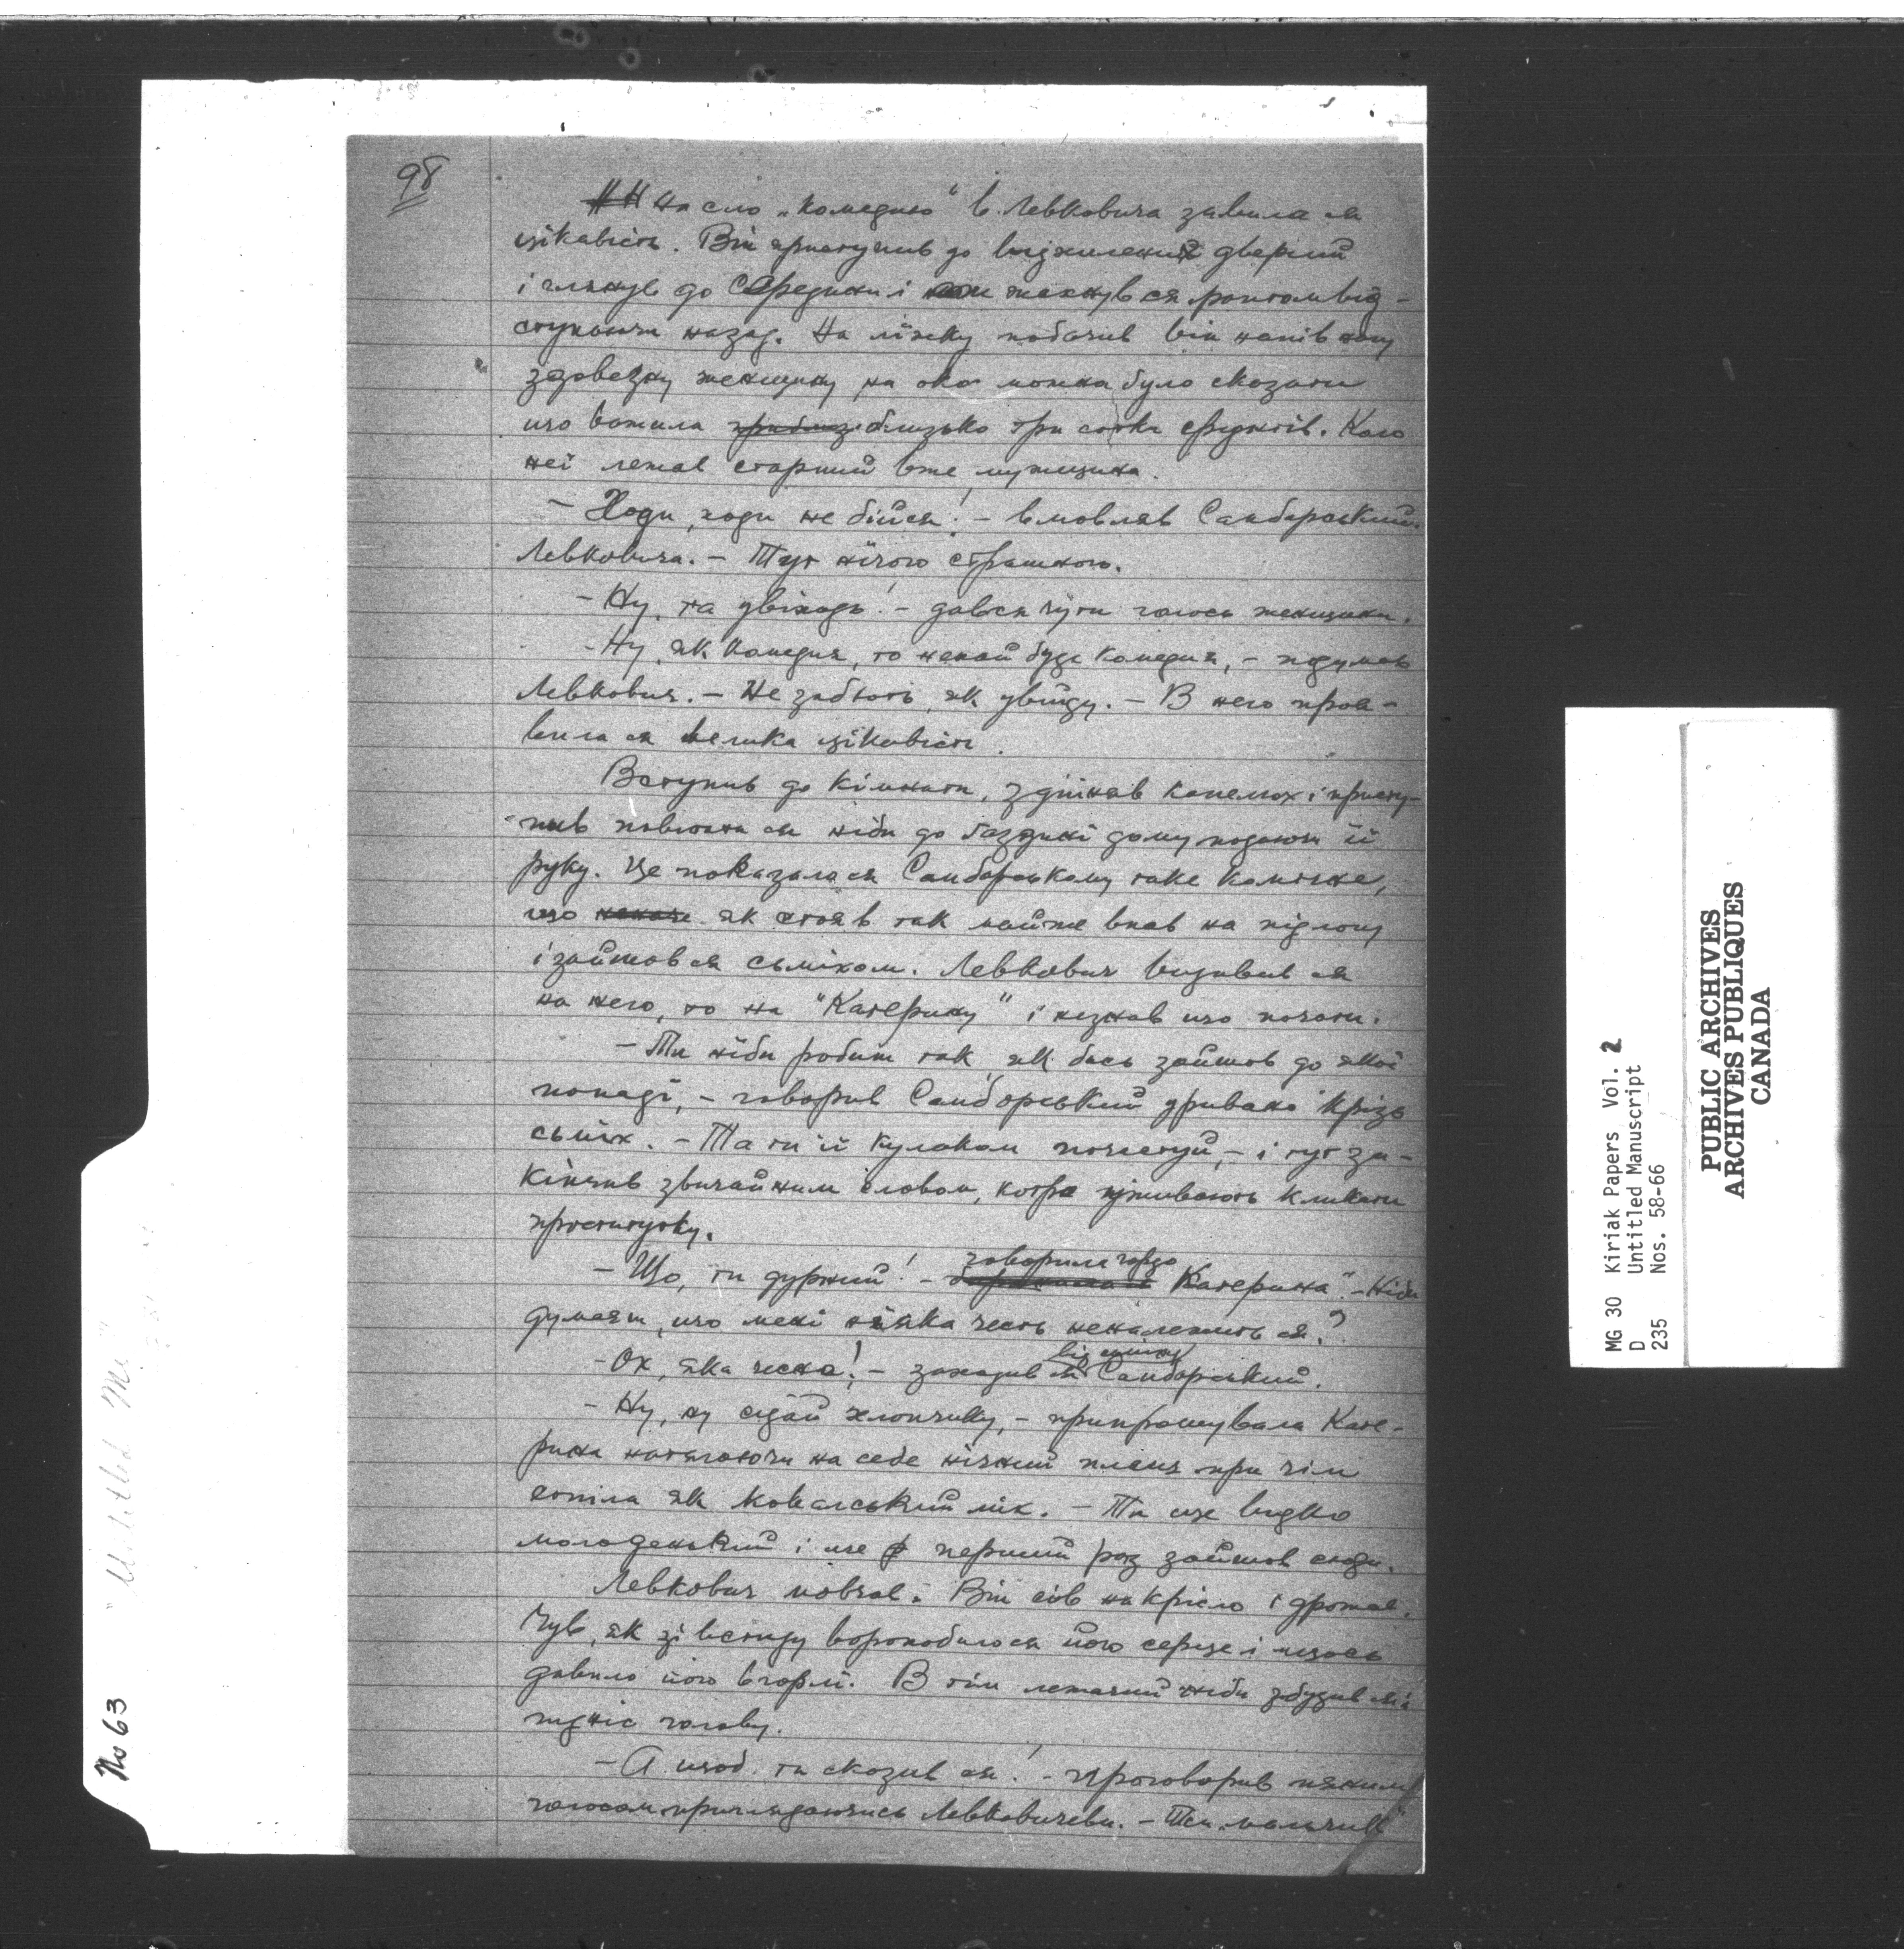 98
На сло „комедию“ в Левковича зявила ся
цікавість. Він приступив до відхилених дверий
і глянув до середини і жахнувся раптом від-
ступаючи назад. На ліжку побачив він напів нагу
здовезну женщину, на око можна було сказати
що важила приблиз близько три сотки фунтів. Коло
неї лежав старший вже мужщина.
— Ходи, ходи не бійся! — вмовляв Самборський
Левковича. — Тут нічого страшного.
— Ну, та увіходь! — давося чути голос женщини.
— Ну, як комедия, то нехай буде комедия, — подумав
Левкович. — Не забють, як увійду. — В него проя-
вила ся велика цікавість.
Вступив до кімнати, здіймив капелюх і присту-
пив повитати ся ніби до газдині дому подаючи її
руку. Це показалося Самборському таке комічне,
що неначе як стояв так майже впав на підлогу
і зайшов ся сьміхом. Левкович дивив ся
на него, то на "Катерину" і незнав що почати.
— Ти ніби робиш так, як бись зайшов до якої
попаді, — говорив Самборський уривано крізь
сьміх. — Та ти її кулаком почастуй, — і тут за-
кінчив звичайним словом, котре уживають кликати
проститутку.
— Що, ти дурний! — говорила гордо Катерина". — Ніби
думаєш, що мені ніяка честь неналежить ся?
— Ох, яка чесна! — заходив ся від сьміху Самборський.
— Ну, ну сідай хлопчику, — припрошувала Кате-
рина натягаючи на себе нічний плащ при чім
сопіла як ковальський міх. — Ти ще видко
молоденький і ще перший раз зайшов сюди.
Левкович мовчав. Він сів на крісло і дрожав.
Чув, як зі встиду воркобилося його серце і щось
давило його в горлі. В тім лежачий ніби збудив ся і
підніс голову.
— А щоб ти сказив ся! — проговорив пяним
голосом приглядаючись Левковичеви. — Тси „мальчик“
No 63
"Untitled Ms"
MG 30 Kiriak Papers Vol. 2
D Untitled Manuscript
235 Nos. 58-66
PUBLIC ARCHIVES
ARCHIVES PUBLIQUES
CANADA